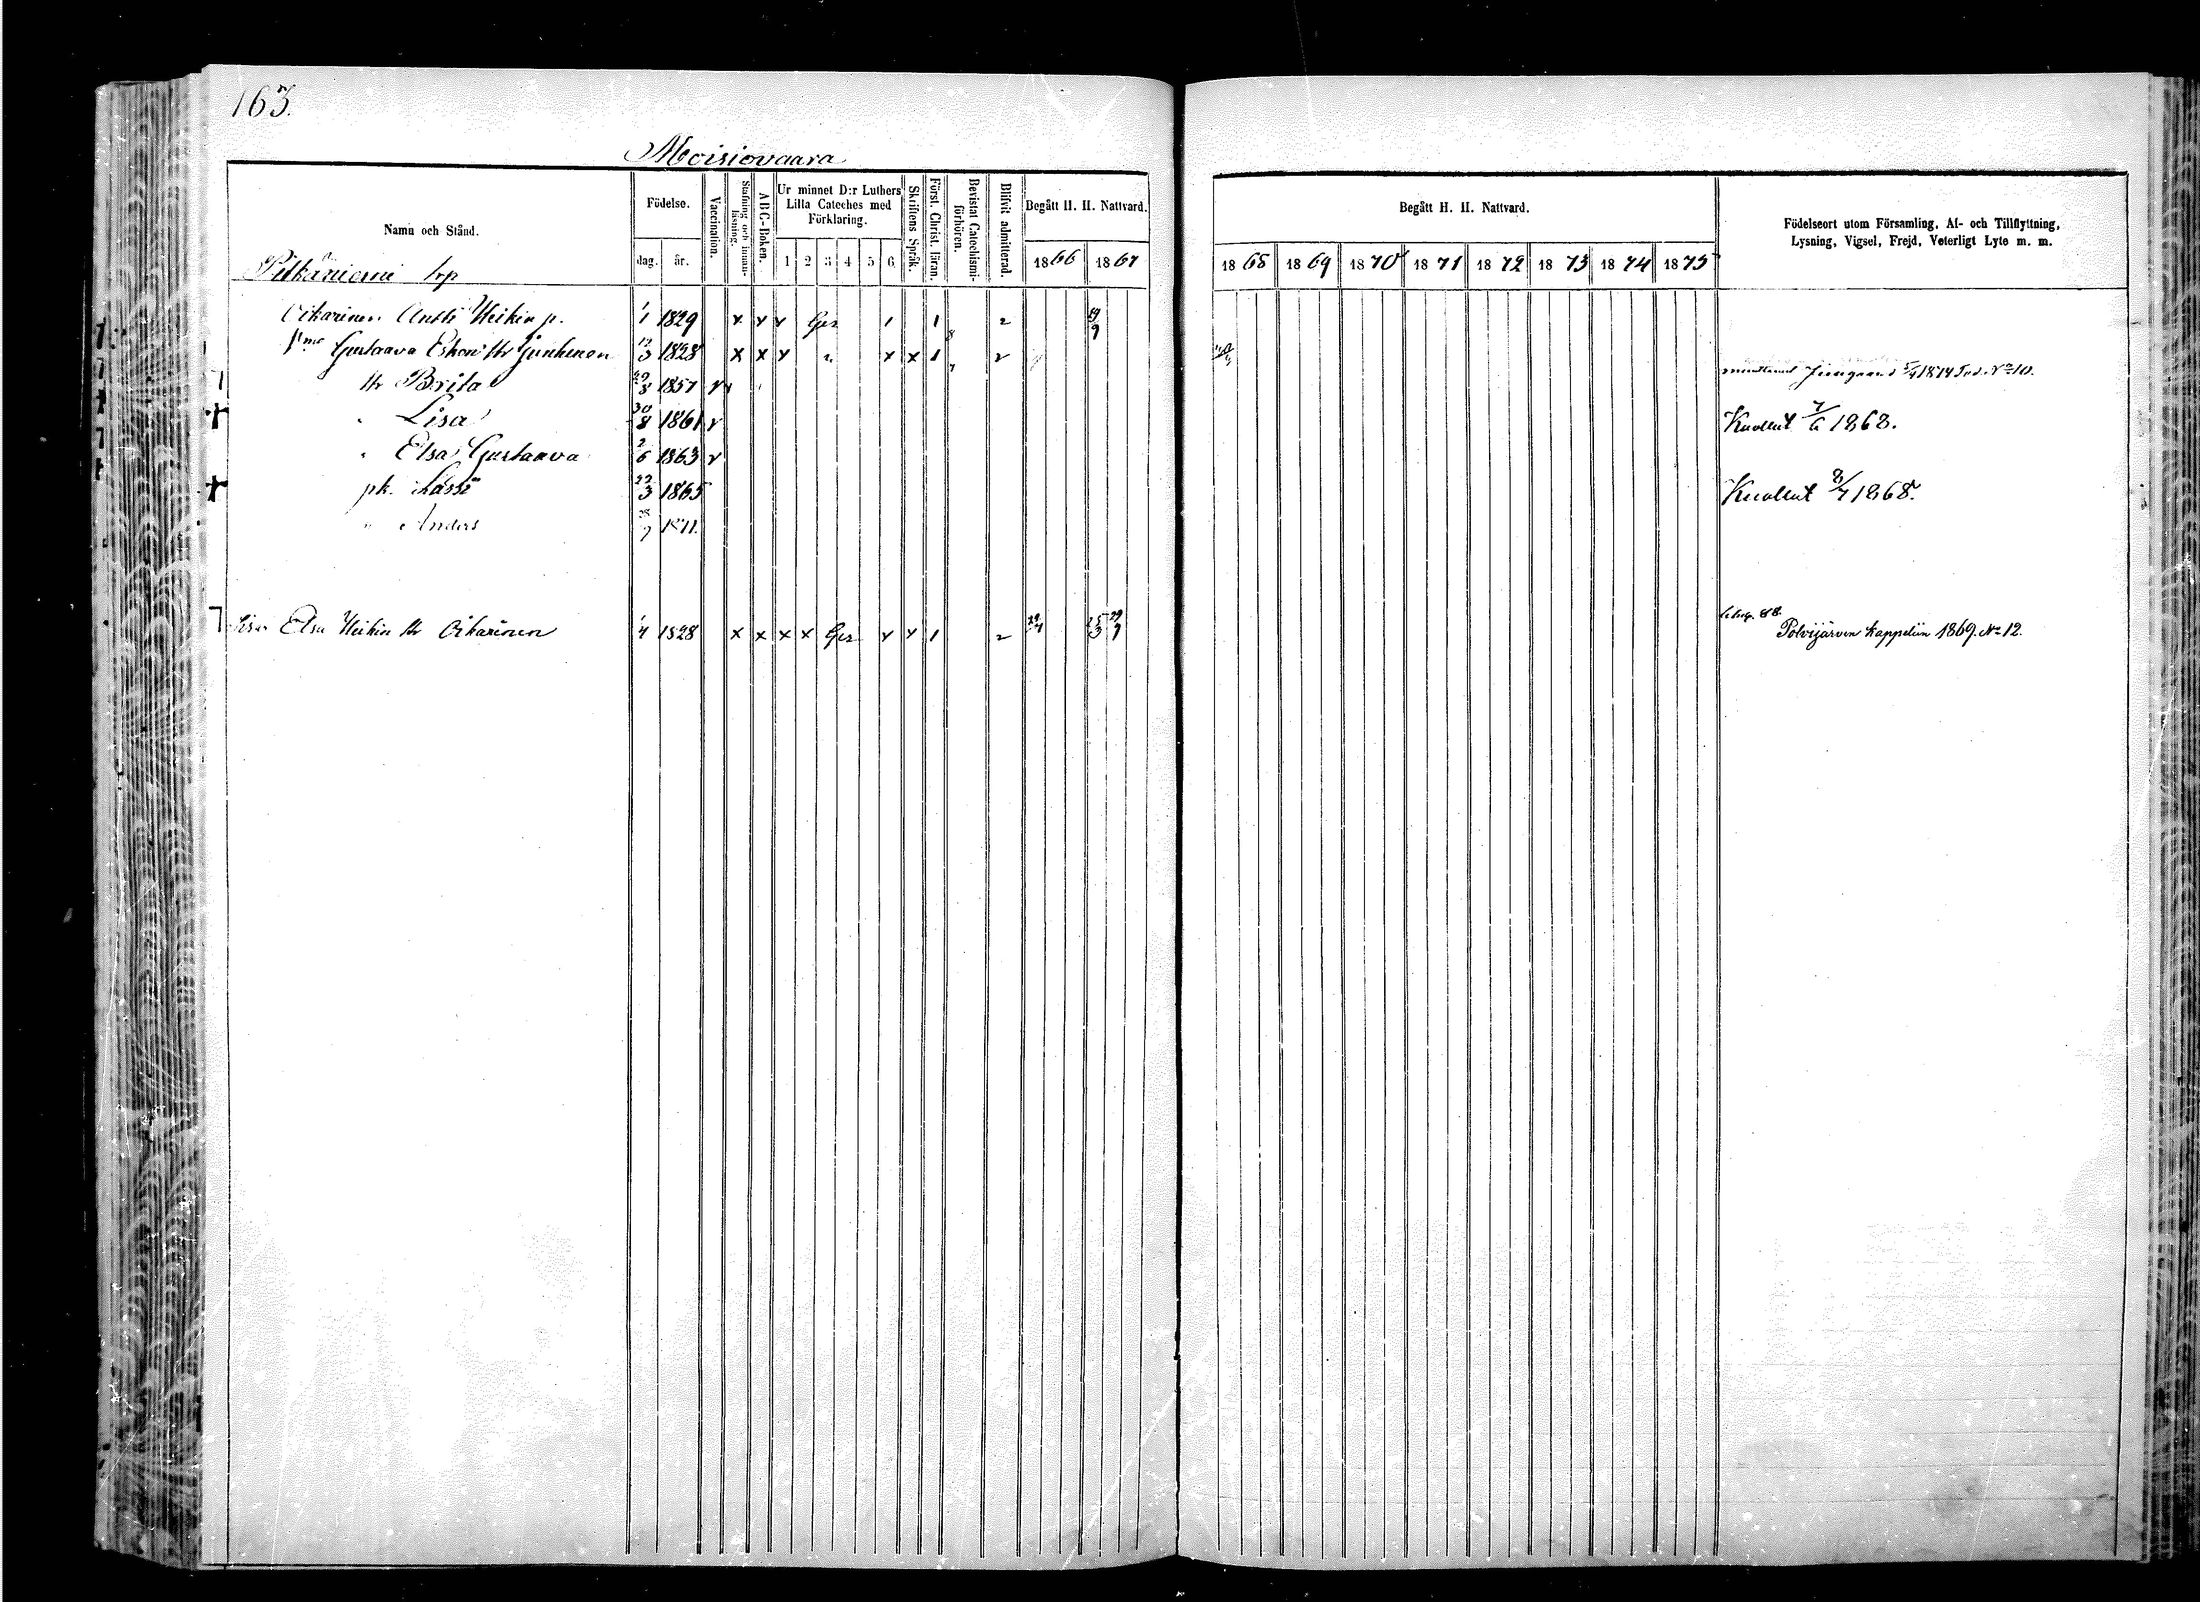 163.
Moisiovaara
Namn och Stånd.
Födelse.
dag. år.
Vaccination.
Stafning och innanläsning.
ABC-Boken.
Ur minnet D:r Luthers Lilla Cateches med Förklaring.
1 2 3 4 5 6
Skriftens Språk.
Först. Christ. läran.
Bevistat Catechismiförhören.
Blifvit admitterad.
Begått H. H. Nattvard.
1866 1867
Begått H. H. Nattvard.
1868 1869 1870 1871 1872 1873 1874 1875
Födelseort utom Församling, Af- och Tillflyttning,
Lysning, Vigsel, Frejd, Veterligt Lyte m. m.
Pitkäniemi trp
Oikarinen Antti Heikin p. 1/1 1829 x x x Ger 1 1 2 29/9
Gustaava Eskon tr Juntunen 12/3 1828 x x x x x 1 2
tr Brita 1857
1874 No 10.
" Lisa 30/8 1861 Kuollut 7/6 1868.
" Elsa Gustaava 2/6 1863
pk. Lassi 22/3 1865 Kuollut 8/7 1868.
" Anders 1871.
Elsa Heikin tr Oikarinen 1/4 1828 x x x x Ger x x 1 2
88.
Polvijärven kappeliin 1869. No 12.